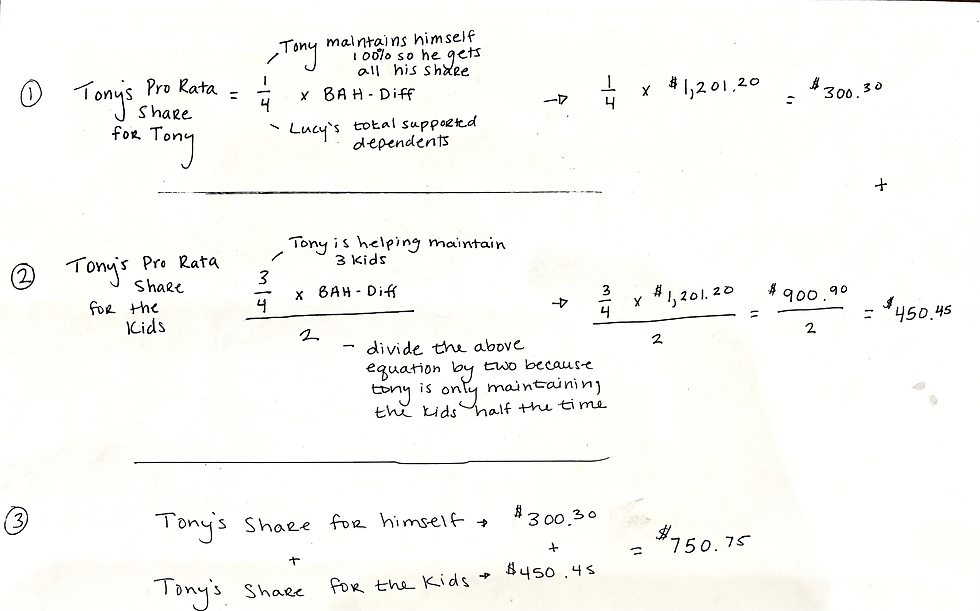 Tony maintains himself
100% so he gets
all his share
① Tony's Pro Rata Share for Tony = 1/4 x BAH-Diff → 1/4 x $1,201.20 = $300.30
Lucy's total supported
dependents
+
Tony is helping maintain
3 kids
② Tony's Pro Rata Share for the Kids 3/4 x BAH-Diff / 2 → 3/4 x $1,201.20 / 2 = $900.90 / 2 = $450.45
- divide the above
equation by two because
tony is only maintaining
the kids half the time
③ Tony's Share for himself → $300.30
+ + = $750.75
Tony's Share for the Kids → $450.45